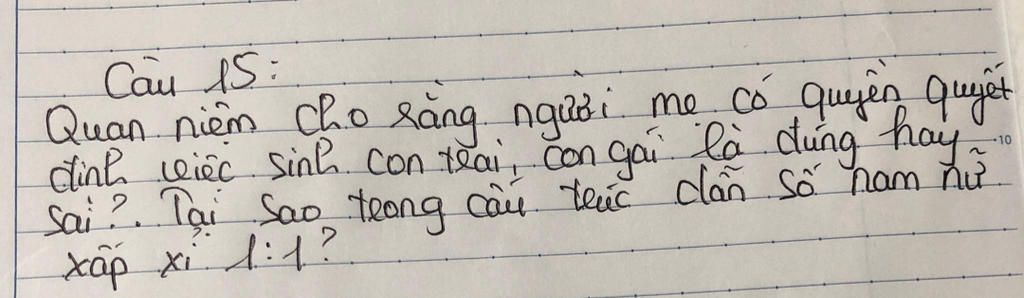 Câu 15:
Quan niệm cho rằng người mẹ có quyền quyết
định việc sinh con trai, con gái là đúng hay
sai?. Tại sao trong cấu trúc dân số nam nữ
xấp xỉ 1:1?
10